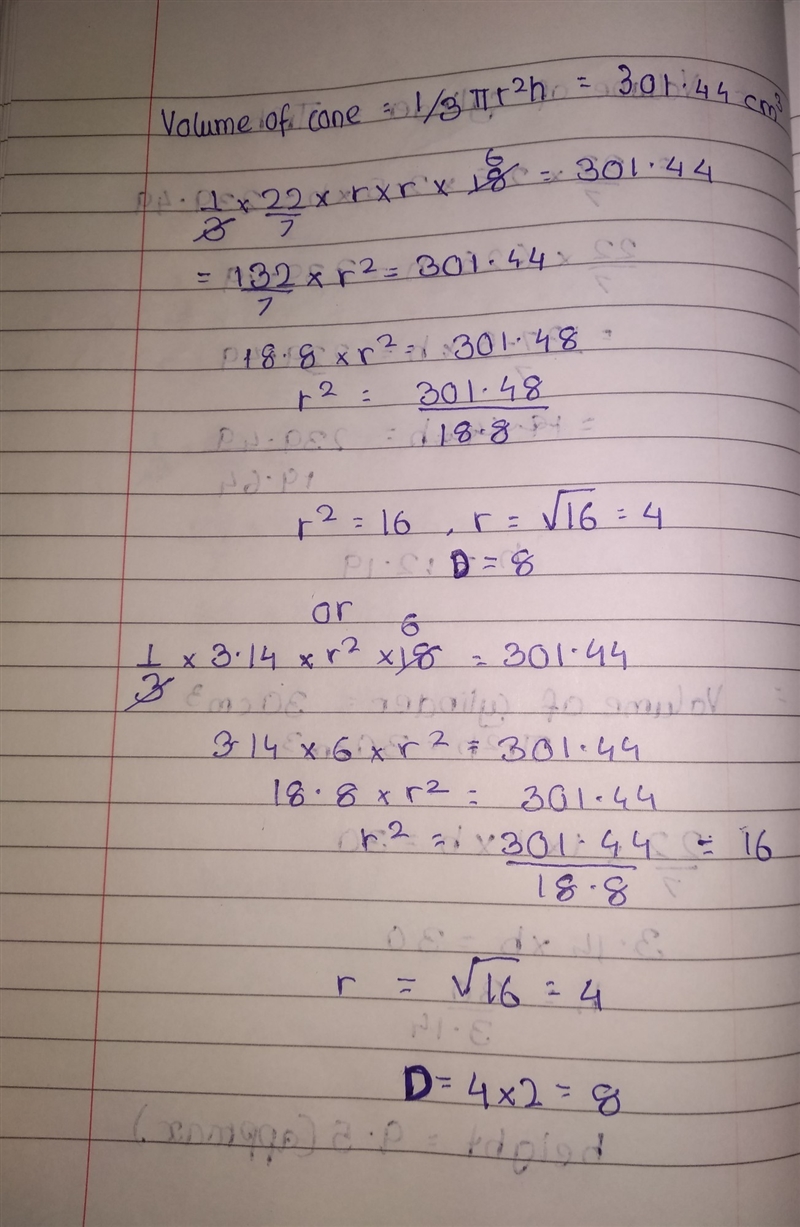 Volume of cone = 1/3 πr²h = 301.44 cm³
1/3 × 22/7 × r × r × 18 6 = 301.44
= 132/7 × r² = 301.44
18.8 × r² = 301.48
r² = 301.48/18.8
r² = 16 , r = √16 = 4
D = 8
or
1/3 × 3.14 × r² × 18 6 = 301.44
3.14 × 6 × r² = 301.44
18.8 × r² = 301.44
r² = 301.44/18.8 = 16
r = √16 = 4
D = 4×2 = 8